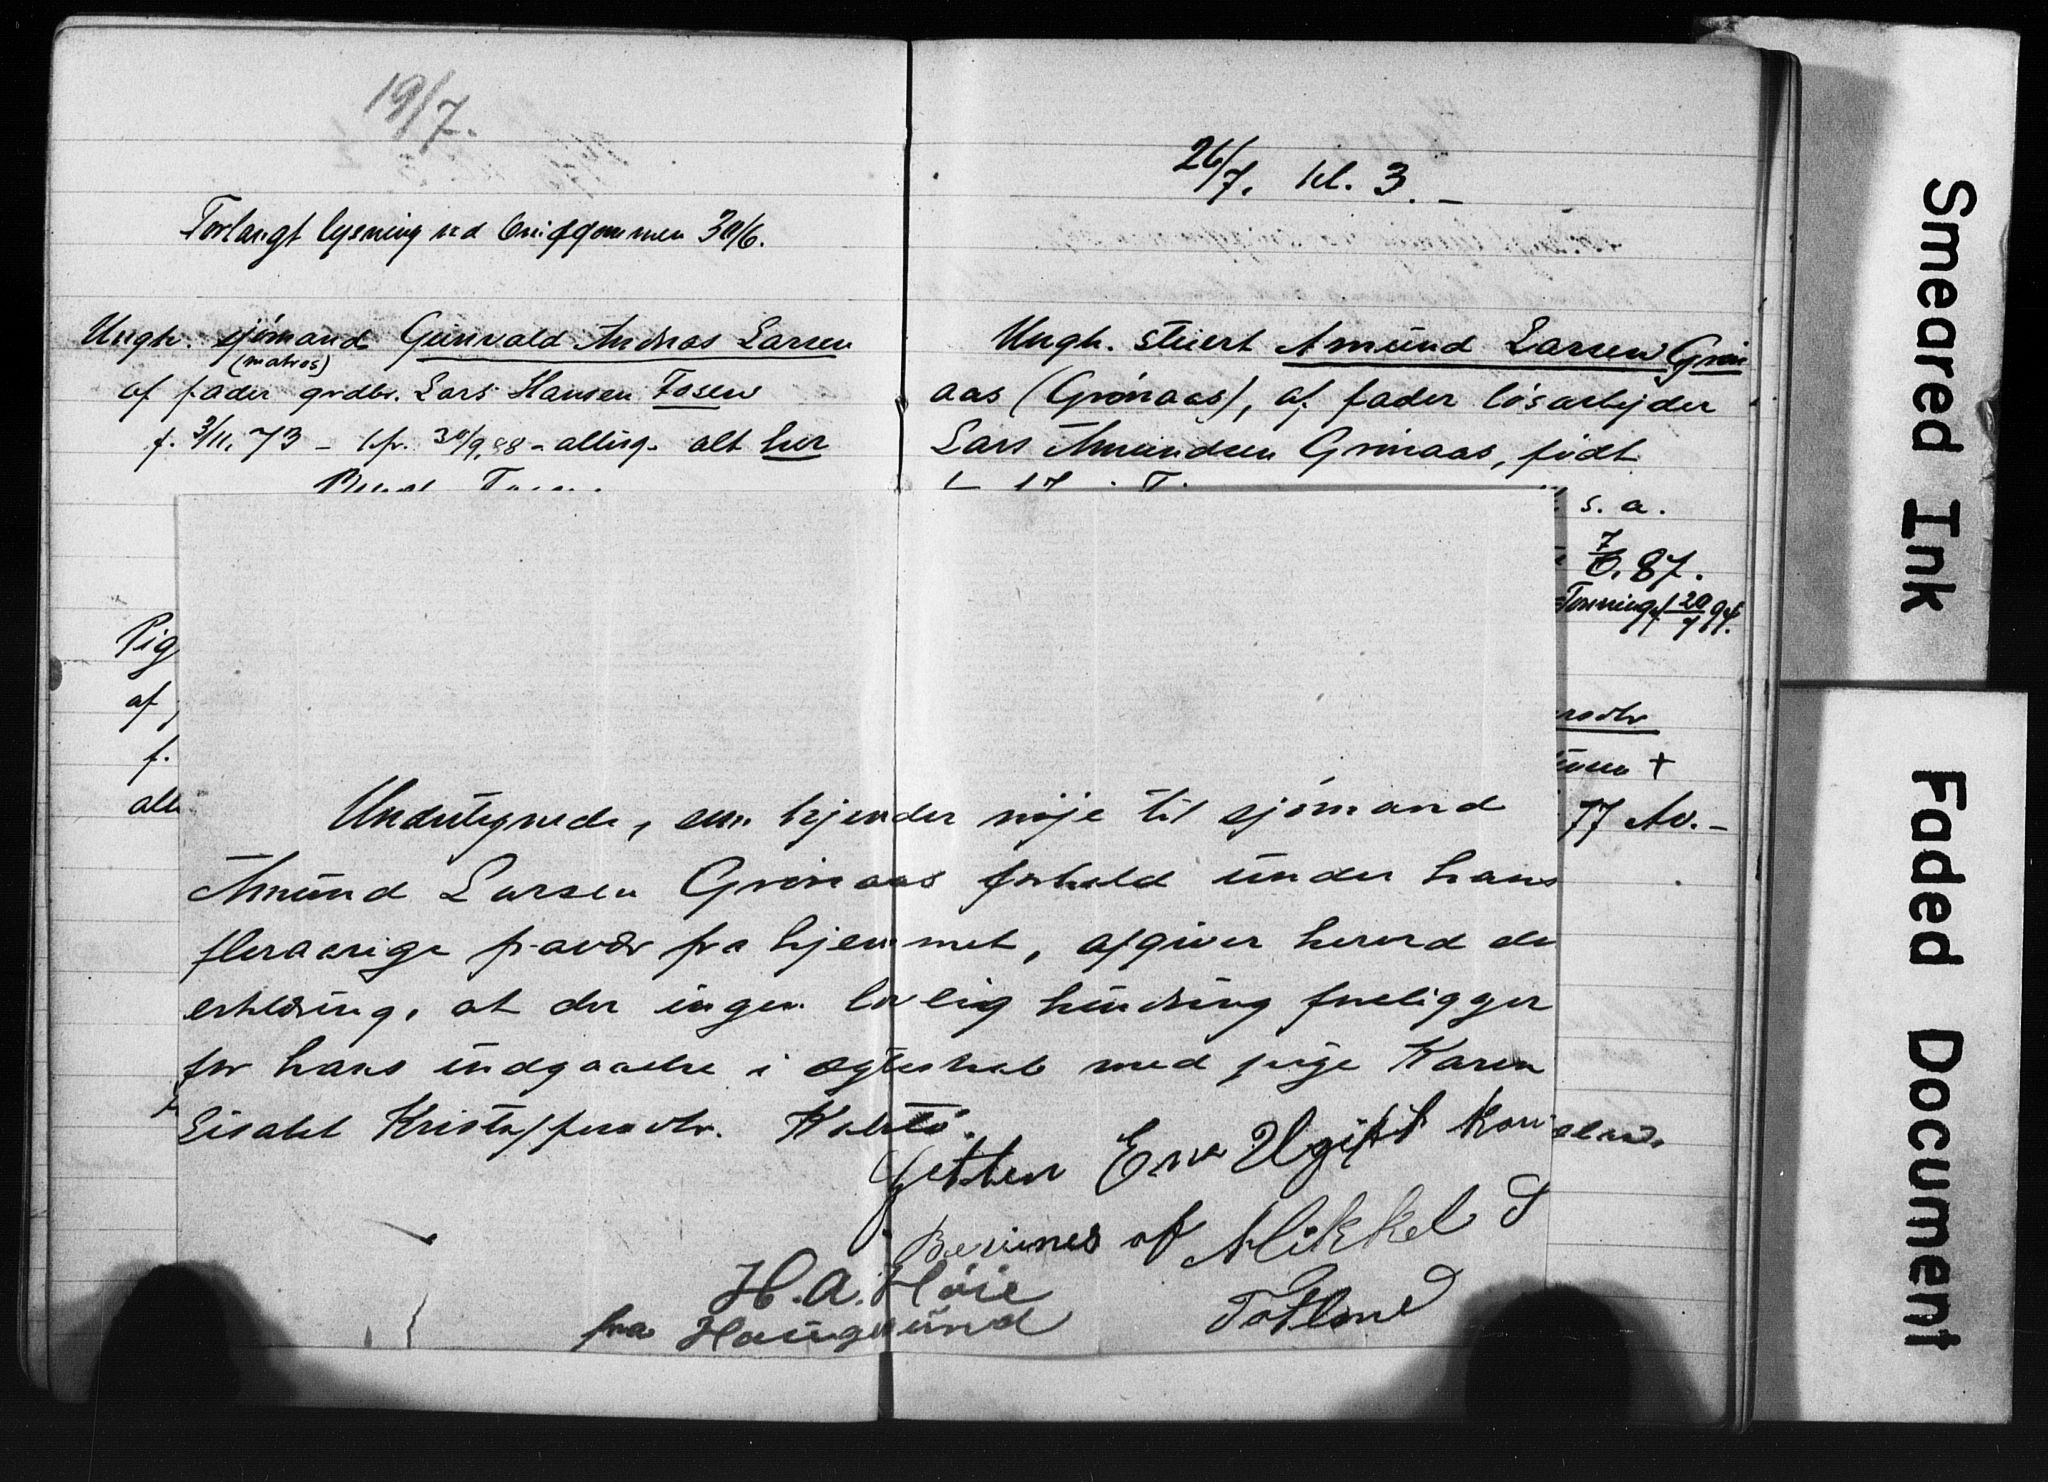 19/7.
Forlangt lysning ved brudgommen 30/6.
Ungk. sjömand Gunvald Andreas Larsen
(matros)
af fader grdbr. Lars Hansen Fosen
f. 3/11. 73 - kfr. 30/9. 88 - attesg. alt her
Pig
af
f.
26/7. kl. 3. -
Ungk. stuert Amund Larsen Grön
aas (Grönaas), af fader lösarbejder
Lars Amundsen Grönaas, födt
s. a.
7/6. 87.
20/7 94.
77 Av. -
Undertegnede, som kjender nöje til sjömand
Amund Larsen Grönaas forhold under hans
fleraarige fravær fra hjemmet, afgiver herved den
erklæring, at der ingen lovlig hindring foreligger
for hans indgaaelse i ægteskab med pige Karen
Lisabet Kristoffersdtr. Kolstö.
Jetten Er Ugift
Bevines af Mikkel S
H. A. Höie
fra Haugesund
Smeared Ink
Faded Document